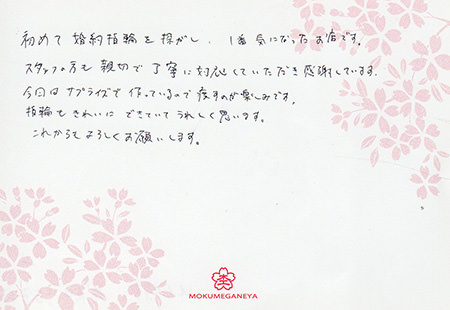 初めて婚約指輪を探がし、1番気になったお店です。
スタッフの方も親切で丁寧に対応していただき感謝しています。
今回はサプライズで作っているので渡すのが楽しみです。
指輪もきれいにできていてうれしく思います。
これからもよろしくお願いします。
MOKUMEGANEYA